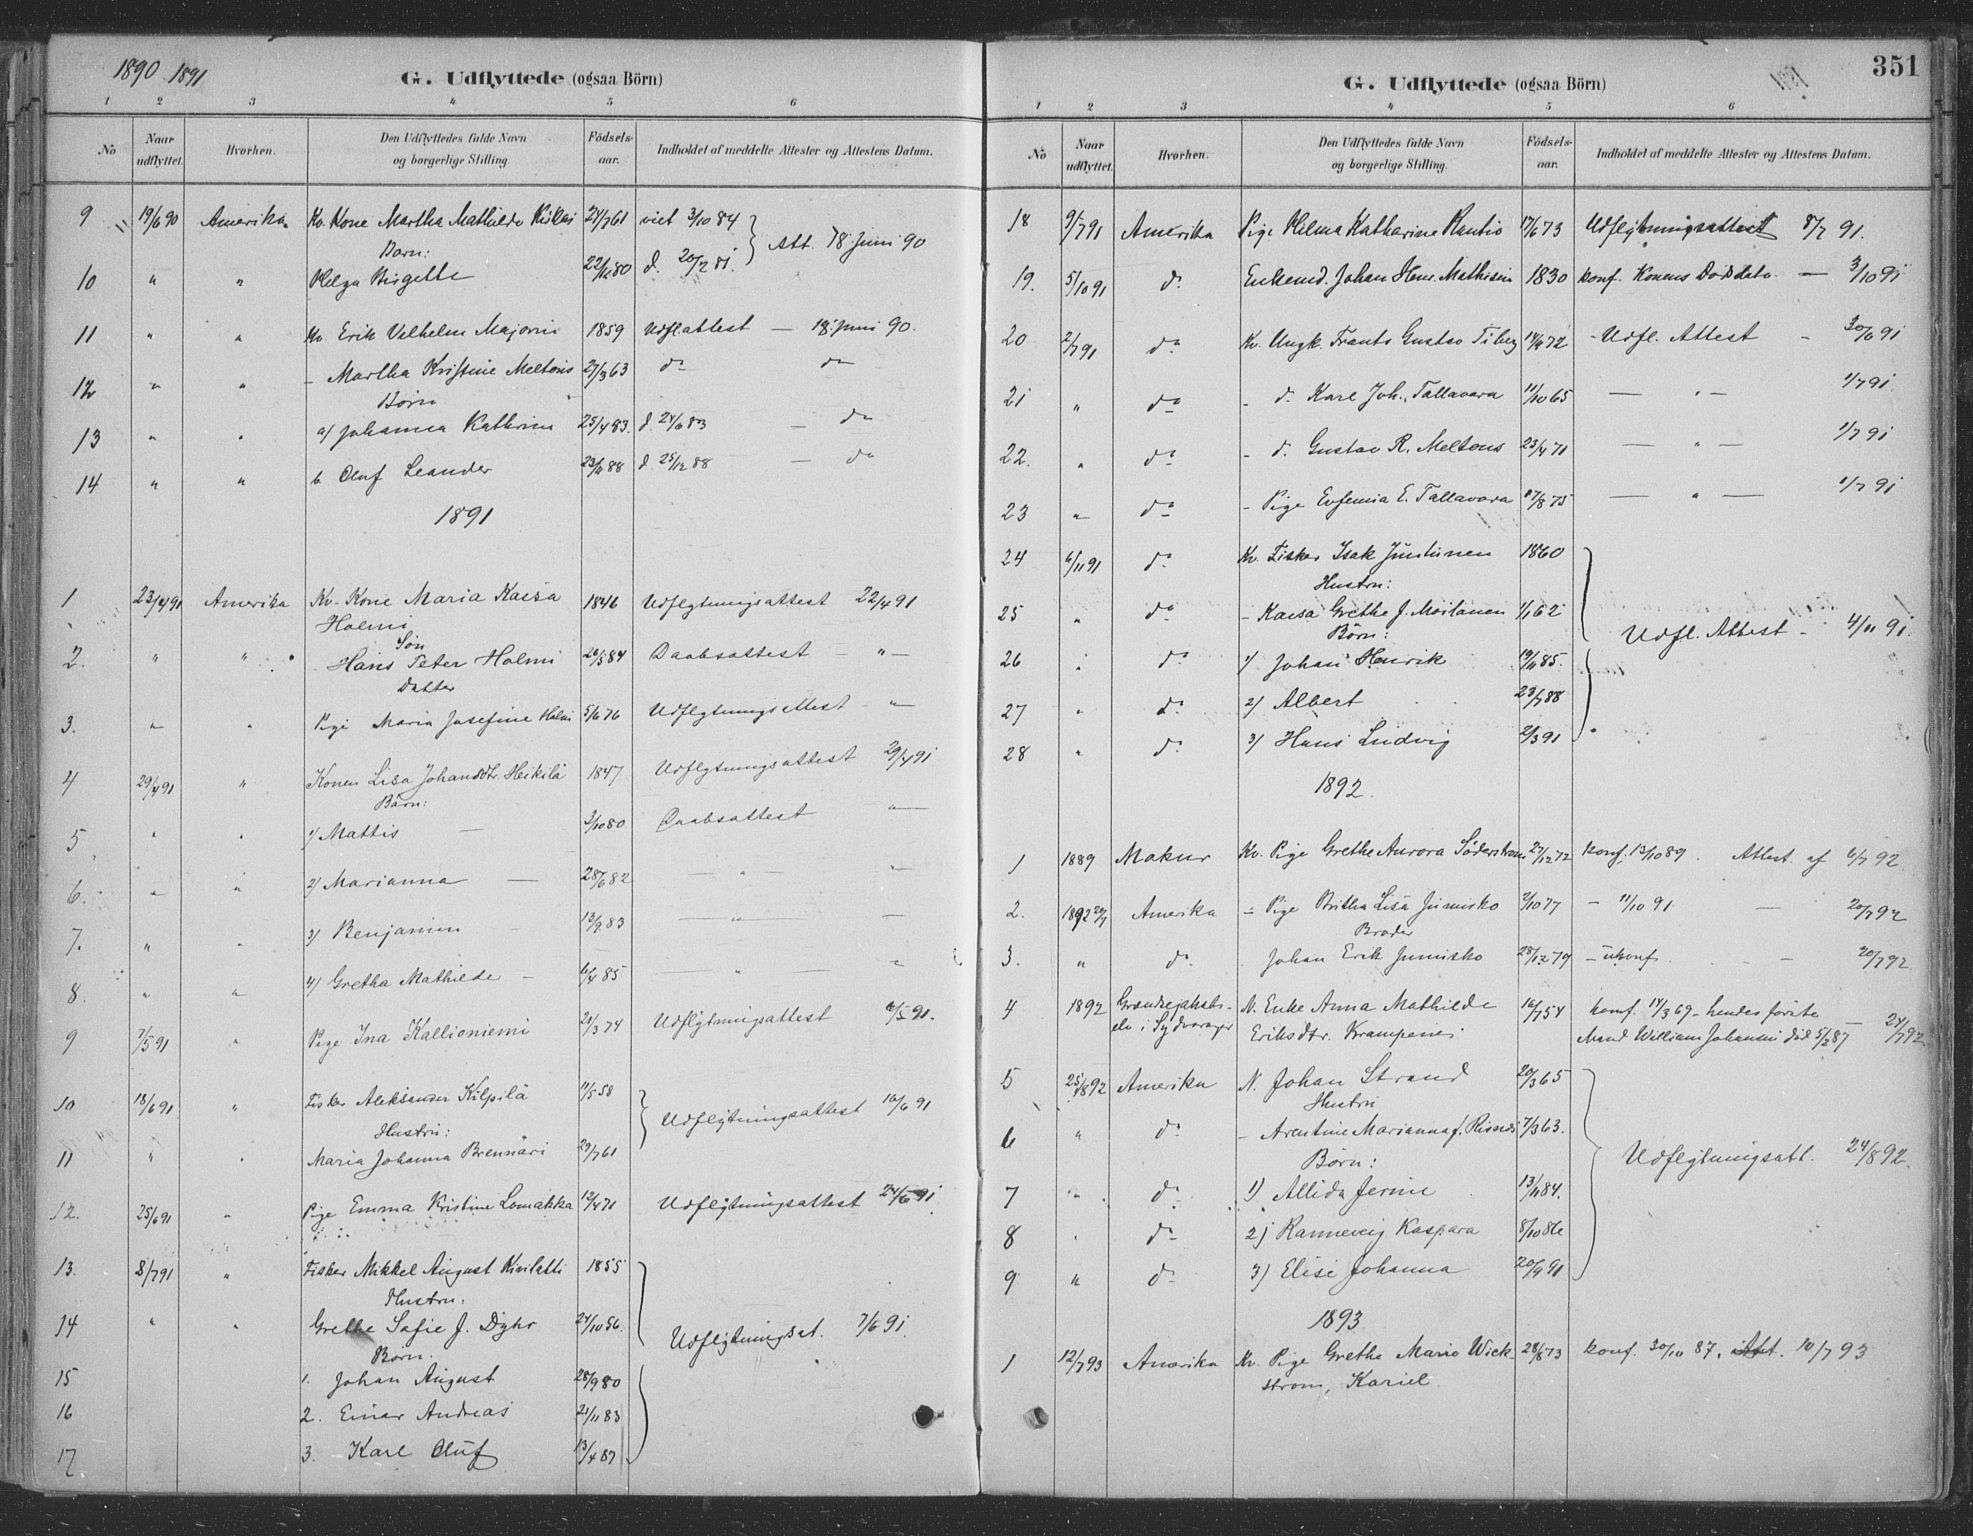 1890 1891
G. Udflyttede (ogsaa Börn)
1 2 3 4 5 6
No
Naar udflyttet.
Hvorhen.
Den Udflyttedes fulde Navn og borgerlige Stilling.
Födsels-aar.
Indholdet af meddelte Attester og Attestens Datum.
9 19/6 90 Amerika Kv. Kone Martha Mathilde 24/7 61 viet 3/10 84
Barn:
10 " " Helga Birgette 22/11 80 d. 20/2 81. Att. 18 Juni 90
11 " " Kv. Erik Vilhelm Majovri 1859 Udfl attest — 18. Juni 90.
12 " " - Martha Kristine Meltons 27/3 63 do do
Børn
13 " " a) Johanna Kathrine 25/4 83. d. 24/6 83 — do
14 " " b. Oluf Leander 23/11 88 d. 25/12 88 — do
1891
1 23/4 91 Amerika Kv. Kone Maria Kaisa 1846 Udflytningsattest 22/4 91
Holmi
Søn
2. " " Hans Peter Holmi 20/5 84 Daabsattest - " -
Datter
3. " " Pige Maria Josefine Holmi 5/6 76 Udflytningsattest - " -
4 29/4 91 " Konen Lisa Johansdtr. Heikilä 1847 Udflytningsattest 29/4 91
Børn:
5 " " 1) Mattis — 3/10 80 Daabsattest "
6. " " 2) Marianna — 28/6 82 — " — "
7. " " 3) Benjamin 13/9 83 — " — —
8. " " 4) Gretha Mathilde - 6/4 85 — " — "
9 7/5 91 " Pige Ina Kallioniemi 20/3 74 Udflytningsattest 6/5 91.
10 18/6 91 " Fisker Aleksander Kilpilä 11/5 58
Hustru: Udflytningsattest 16/6 91
11 " " Maria Johanna Brennäri 29/7 61
12. 25/6 91 " Pige Emma Kristine Lomakka 12/4 71 Udflytningsattest 24/6 91
13. 8/7 91 " Fisker Mikkel August Kivilatti 1855
Hustru:
14 " " Grethe Sofie f. Dyhr 24/10 56. Udflytningsat. 7/6 91.
Børn.
15 1. Johan August 28/9 80
16 2. Einar Andreas 21/11 83
17 3. Karl Oluf 13/4 87
351
G. Udflyttede (ogsaa Börn)
1 2 3 4 5 6
No
Naar udflyttet.
Hvorhen.
Den Udflyttedes fulde Navn og borgerlige Stilling.
Födsels-aar.
Indholdet af meddelte Attester og Attestens Datum.
18 9/7 91 Amerika Pige Helma Katharine Rantio 17/6 73 Udflytningsattest 8/7 91.
19. 5/10 91 do Enkemd. Johan Henr. Mathisen 1830 konf. Konens Dødsdato — 3/10 91
20 2/7 91 do Kv. Ungk. Frants Gustav Tiberg 14/9 72 - Udfl. Attest - 30/6 91
21 " do - do Karl Joh. Tallavara 11/10 65 — " — 1/7 91
22. " do - do Gustav R. Meltons 23/4 71 — " — 1/7 91
23 " do - Pige Eufemia E. Tallavara 17/8 75 — " — 1/7 91
24 6/11 91 do Kv. Fisker Isak Juntunen 1860
Hustru:
25 " do - Kaisa Grethe f. Moilanen 1/1 62
Børn: Udfl. Attest - 4/11 91.
26 " do 1) Johan Henrik 19/11 85.
27 " do 2) Albert 23/7 88
28 " do 3) Hans Ludvig 2/3 91
1892
1 1889 Makur Kv. Pige Grethe Aurora Söderstrøm 27/12 72 konf. 13/10 89. Attest. af 6/7 92
2. 1892 20/7 Amerika - Pige Britha Lisa Junisko 2/10 77 - 11/10 91 — 20/7 92
Broder
3. " do Johan Erik Junisko 28/12 79 - ukonf. - 20/7 92
4 1892 Grændsejakobs-elv i Sydvaranger N. Enke Anna Mathilde 16/7 54 konf. 14/3 69 - hendes første — 24/7 92
Eriksdtr. Krampenes Mand William Johansen død 5/2 87
5 25/8 92 Amerika N. Johan Strand 20/3 65
Hustru
6 " do - Arentine Marianna f. Risnes 7/3 63.
Børn: Udflytningsatt. 24/8 92.
7 " do 1) Allida Jerine 13/11 84.
8 " do 2) Rannveig Kaspara 8/10 86
9 " do 3) Elise Johanna 20/9 91
1893
1 12/7 93 Amerika Kv. Pige Grethe Marie Wick- 28/8 73 konf. 30/10 87. Att. 10/7 93
strøm, Kariel.